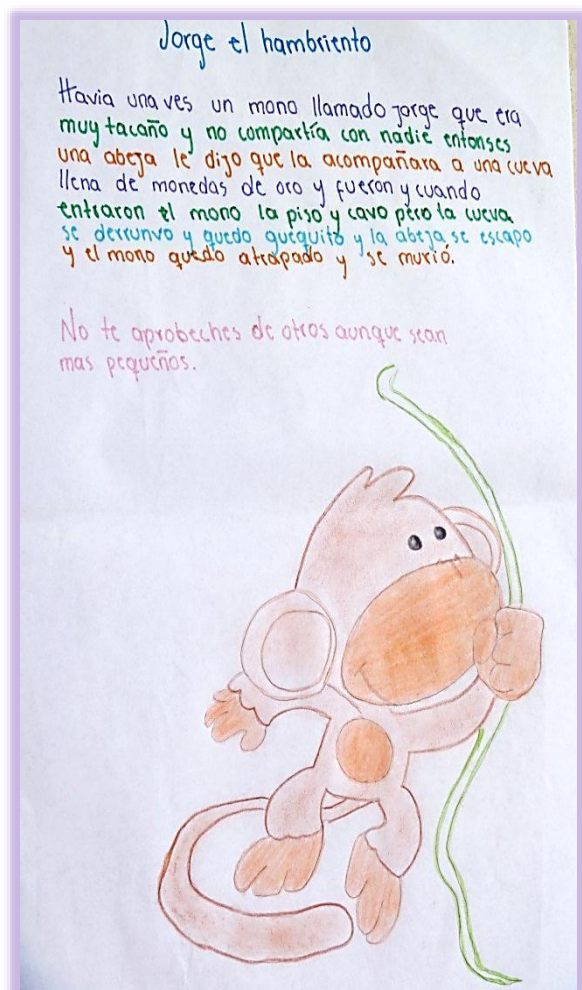 Jorge el hambriento
Havia una ves un mono llamado jorge que era
muy tacaño y no compartía con nadie entonses
una abeja le dijo que la acompañara a una cueva
llena de monedas de oro y fueron y cuando
entraron el mono la piso y cavo pero la cueva
se derrunvo y quedo guequito y la abeja se escapo
y el mono quedo atrapado y se murió.
No te aprobeches de otros aunque sean
mas pequeños.